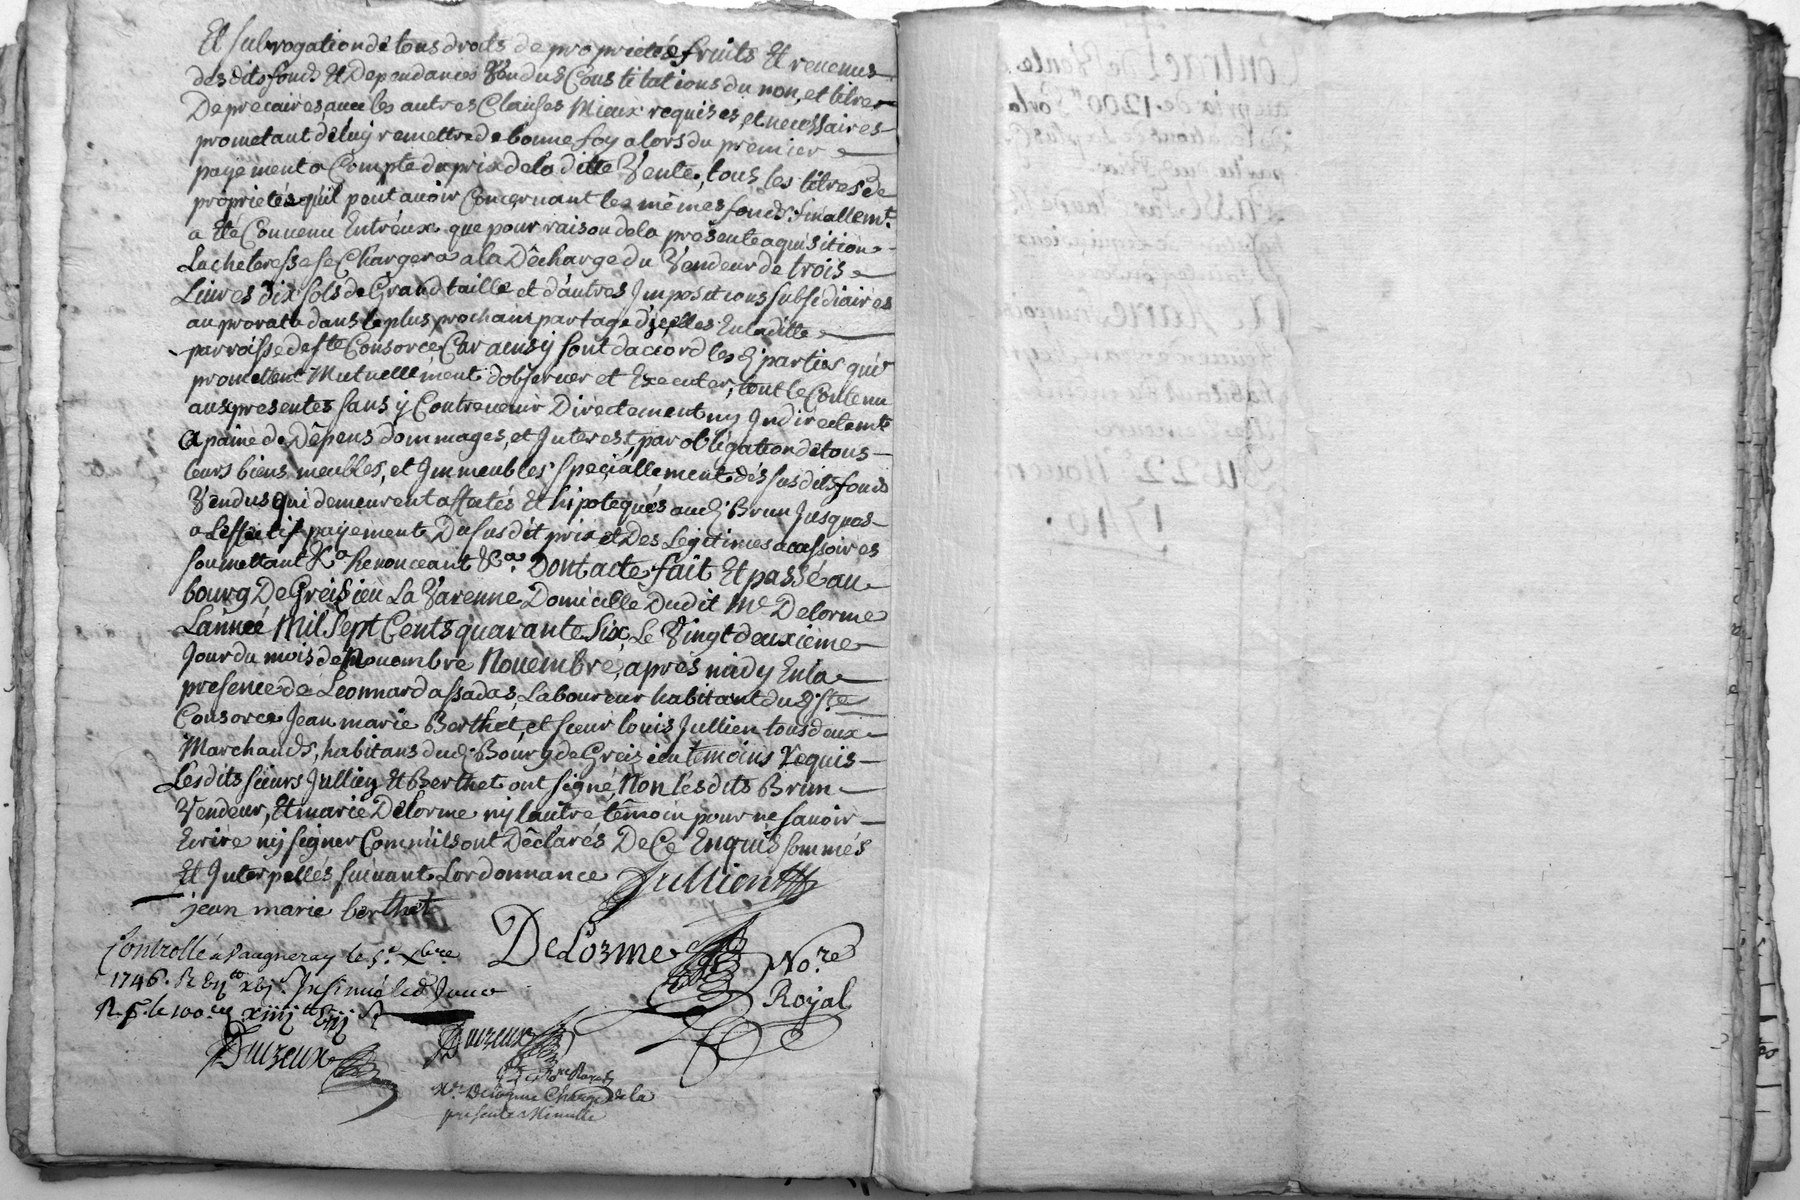 Et subrogation de tous droits de proprietés fruits Et revenus
desdits fonds Et Dependances Vendus Constitutions du non, et titre
De precaires avec les autres Clauses Mieux requises, et necessaires
prometant de luy remettre de bonne foy alors du premier
payement a Compte du prix de la ditte Vente, tous les titres de
proprietés qu'il peut avoir Concernant les mêmes fonds, finallemt.
a Eté Convenu Entréux que pour raison de la presente aquisition
Lacheteresse se Chargera a la Décharge du Vendeur de trois
Livres dix sols de Grand taille et d'autres Impositions subsidiaires
au prorata dans le plus prochain partage d'jcelles En la ditte
parroisse de ste Consorce Car ainsy sont d'accord les d: parties qui
promettent Mutuellement d'observer et Executer, tout le Contenu
aux presentes sans y Contrevenir Directement ny Indirectemt
a paine de Dêpens dommages, et Interest, par obligation de tous
leurs biens meubles, et Immeubles speciallement dés susdits fonds
Vendus qui demeurent affectés Et hipotequés aud: Brun Jusques
a Leffectif payement Du susdit prix et Des Legitimes acessoires
soumettant &a Renonceant &a. Dont acte fait Et passé au
bourg De Greisieu La Varenne Domicille Dudit Me Delorme
Lannéé Mil Sept Cents quarante Six, Le Vingt deuxiéme
Jour du mois de Novembre Novembre, aprés midy En la
presence de Leonnard assadas, Laboureur habitant dud: ste
Consorce Jean marie Berthet, et sieur louis Jullien tous deux
Marchands, habitans dud: Bourg de Greisieu temoins requis
Lesdits siéurs Jullien Et Berthet ont signé, Non lesdits Brun
Vendeur, Et marie Delorme ny lautre têmoin pour ne savoir
Ecrire ny signer Comm'ils ont Dêclarés De Ce Enquis sommés
Et Interpellés suivant Lordonnance Jullien
jean marie berthet
Controllé a Vaugneray le 5e. xbre
DeLorme No.re Royal
1746. R
Insinué led. Jour
R. le 100.e
Duzeux
Duzeux
Chargé de la
presente Minutte
Contract De Vente
au prix de 1200ll. Par la
Du 22e Novem
1746.